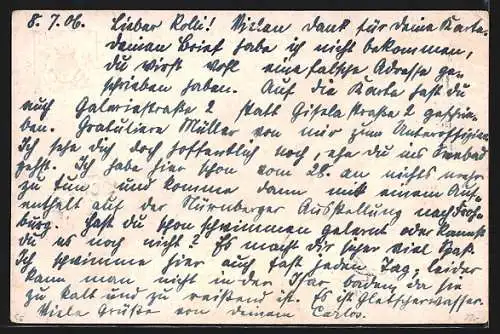 8. 7. 06. Lieber Rolli! Vielen Dank für deine Karte
deinen Brief habe ich nicht bekommen,
du wirst wohl eine falsche Adresse ge-
schrieben haben. Auf die Karte hast du
auch Galeriestraße 2 statt Giselastraße 2 geschrie-
ben. Gratuliere Müller von mir zum Unteroffizier.
Ich sehe dich doch hoffentlich noch, ehe du ins
gehst. Ich habe hier schon vom 28. an nichts mehr
zu tun und komme dann mit einem Auf-
enthalt auf der Nürnberger Ausstellung nach Froh-
burg. Hast du schon schwimmen gelernt oder kannst
du es noch nicht? Es macht dir sicher viel Spaß.
Ich schwimme hier auch fast jeden Tag, leider
kann man nicht in der Isar baden, da sie
zu kalt und zu reißend ist. Es ist Gletscherwasser.
Viele Grüße von deinem Carlos.